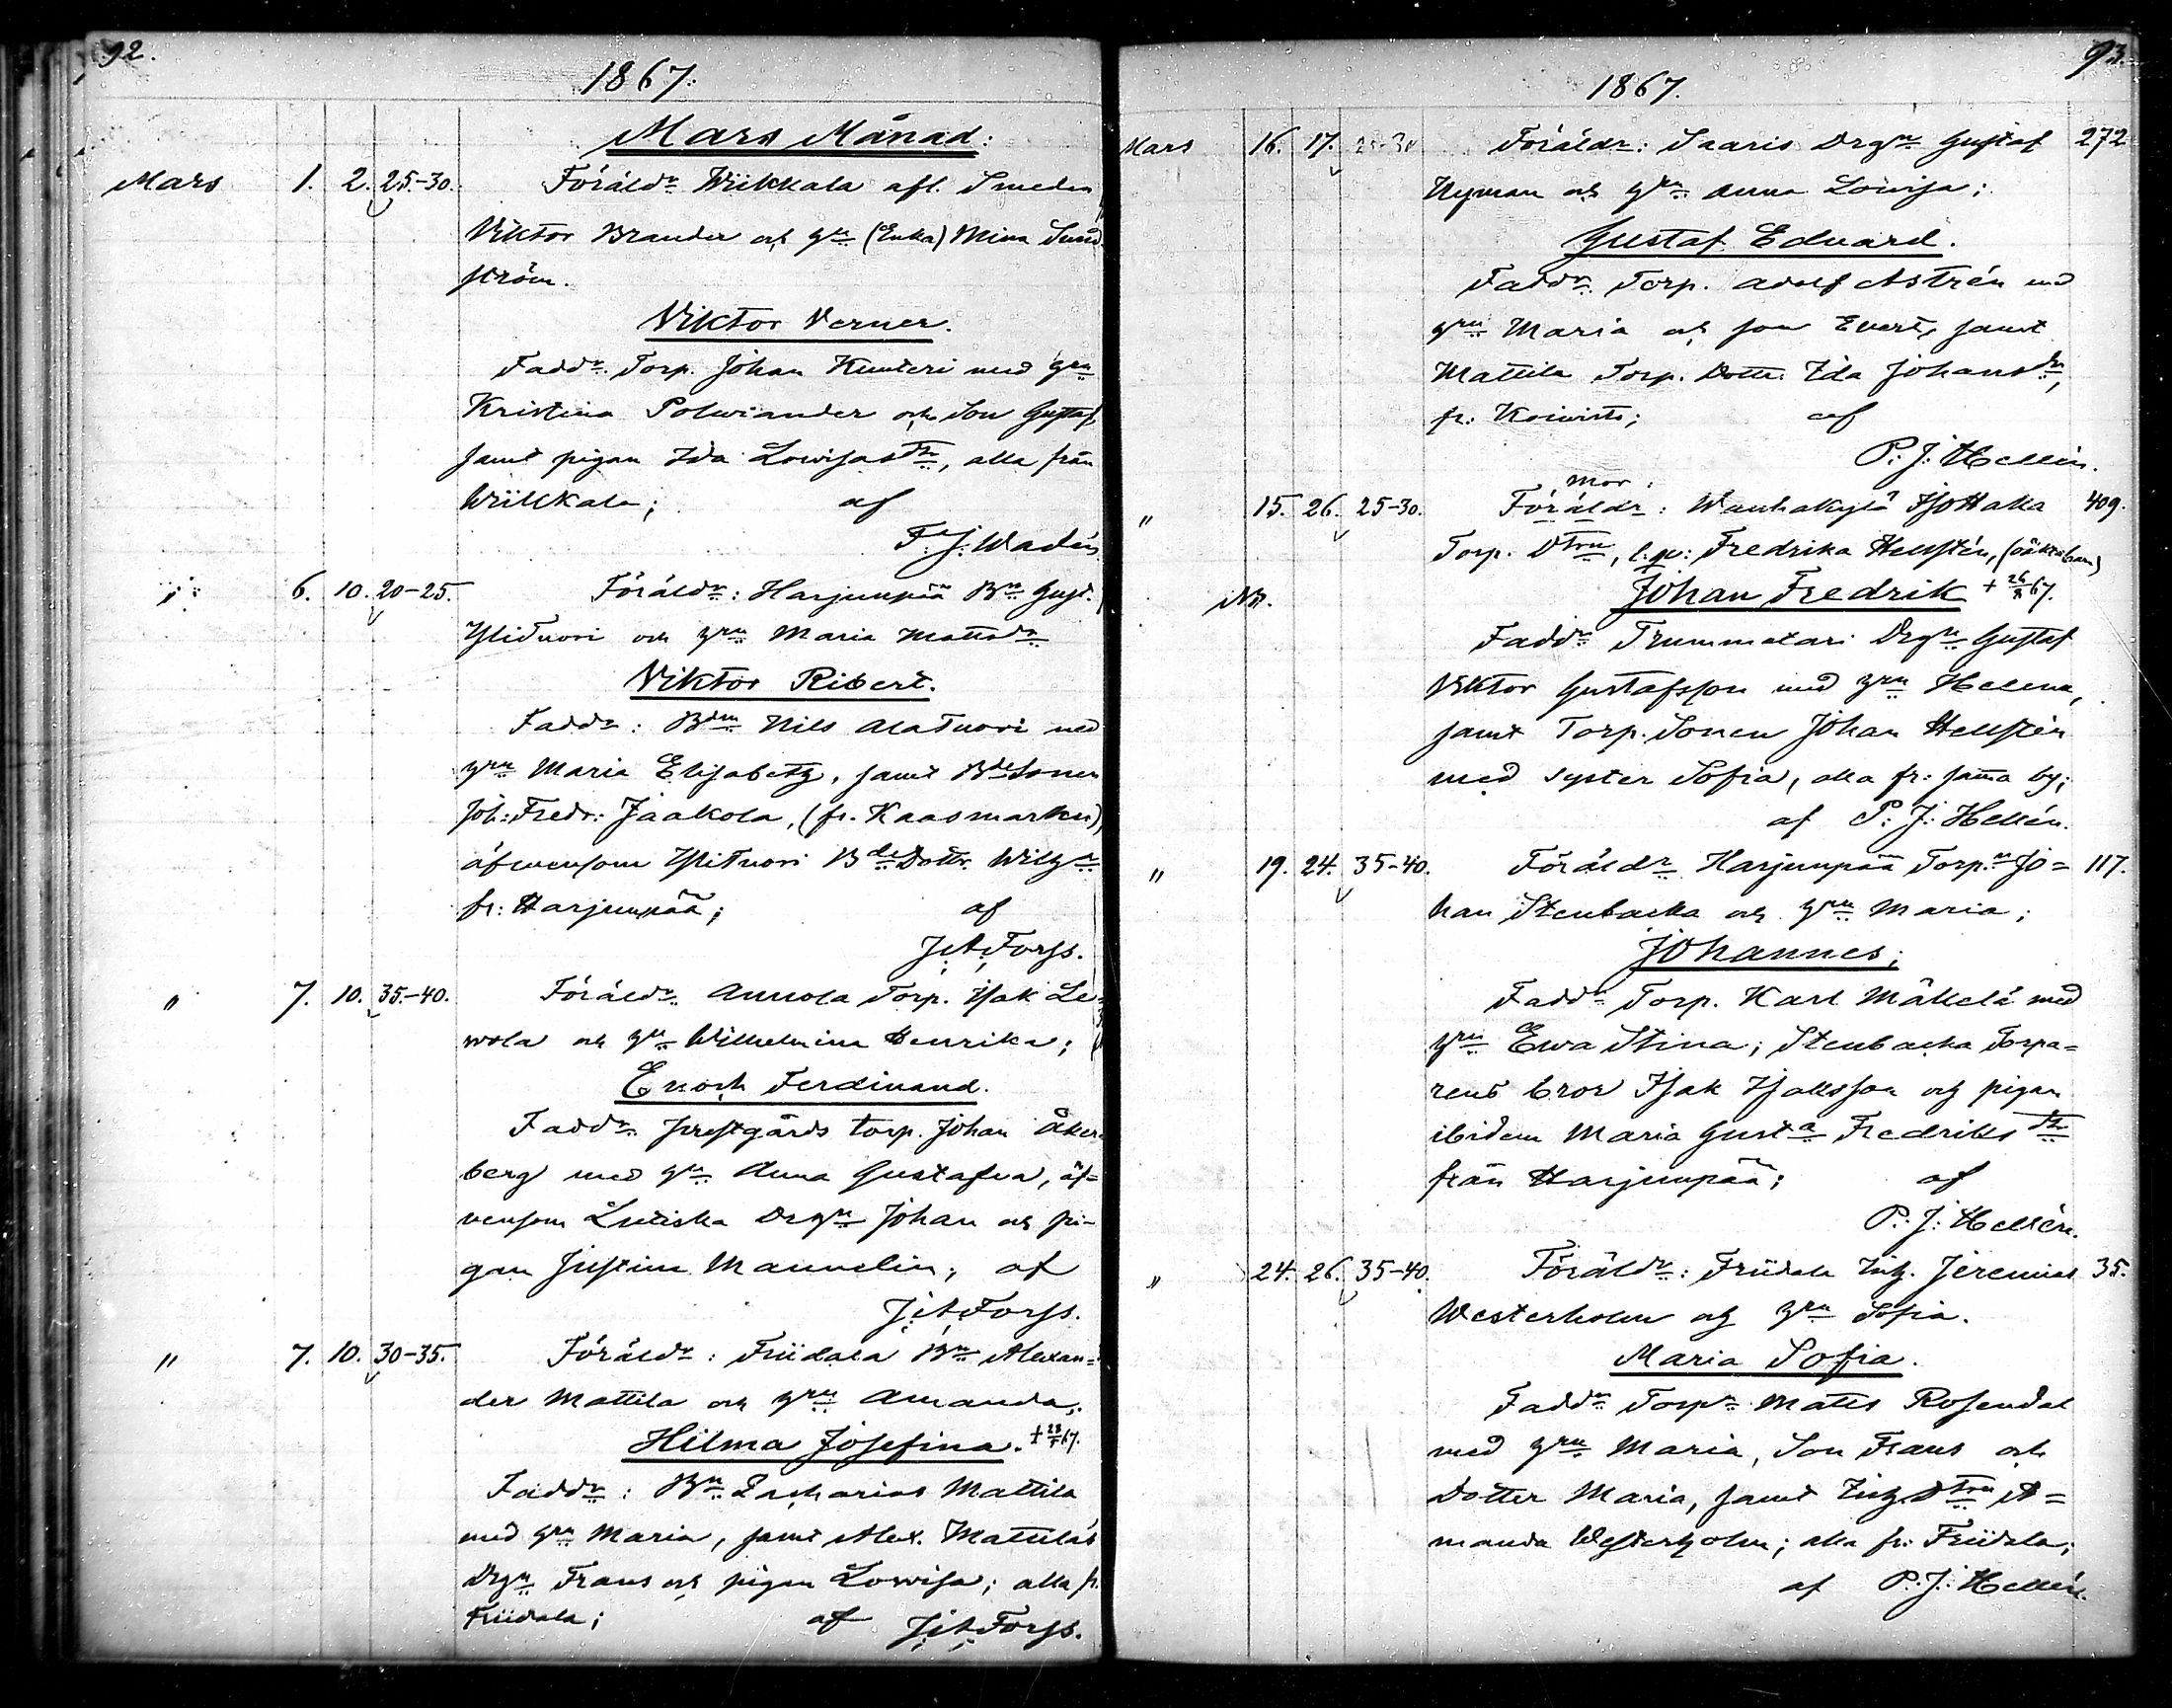 92.
1867.
Mars Månad:
Mars 1. 2. 25-30. Föräldr Wiikkala afl. Smeden
Viktor Brander och hu (Enka) Mina Sund
ström.
Viktor Verner.
Faddr. Torp. Johan Kunteri med hru
Kristina Polviander och Son Gustaf,
samt pigan Ida Lowisasdtr, alla från
Wiikkala; af
F. J. Wadén
" 6. 10. 20-25. Föräldr: Harjunpää Bn Gust.
Ylituori och hru Maria Mattsdr
Viktor Ribert.
Faddr: Bdn Nils Alatuori med
hru Maria Elisabeth, samt Bdesonen
Joh: Fredr: Jaakola, (fr. Kaasmarku),
äfvensom Ylituori Bde Dottr. Wilhna
fr: Harjunpää; af
J. A. Forss.
" 7. 10. 35-40. Föräldr. Annola Torp. Isak Le-
wola och hu Wilhelmina Henrika;
Enoch Ferdinand.
Faddr. prestgårds torp. Johan Åker-
berg med hu Anna Gustafva, äf-
vensom Lutiska Drgn Johan och pi-
gan Justina Mannelin; af
J. A. Forss.
" 7. 10. 30-35. Föräldr: Friidala Bn Alexan-
der Mattila och hru Amanda;
Hilma Josefina. + 28/5 67.
Faddr: Bn Zacharias Mattila
med hru Maria, samt Alex. Mattilas
Drgn Frans och pigan Lovisa; alla fr.
Friidala; af J. A. Forss.
93.
1867.
Mars 16. 17. 25-30 Föräldr: Saaris Drgn Gustaf 272
Nyman och hru Anna Lovisa;
Gustaf Edvard.
Faddr. Torp. Adolf Astrén med
hru Maria och son Evert, samt
Mattila Torp. Dottr. Ida Johansdr,
fr. Koivisto; af
P. J. Hellén.
mor:
" 15. 26. 25-30. Föräldr: Wanhakylä Isottalla 409.
Torp. Dtrn, l. p: Fredrika Hellstén, (oäkta barn)
NB. Johan Fredrik + 26/8 67.
Faddr Trummatari Drgn Gustaf
Viktor Gustafsson med hru Helena,
samt Torp. Sonen Johan Hellstén
med syster Sofia, alla fr: samma by;
af P: J: Hellén.
" 19. 24. 35-40. Föräldr Harjunpää Torp.n Jo= 117.
han Stenbacka och hru Maria;
Johannes;
Faddr Torp. Karl Mäkelä med
hru Ewa Stina; Stenbacka Torpa=
rens bror Isak Isaksson och pigan
ibidem Maria Gusta Fredriksdtr
från Harjunpää; af
P: J: Hellén.
" 24. 26. 35-40. Föräldr: Friidala Inh. Jeremias 35.
Westerholm och hru Sofia.
Maria Sofia.
Faddr Torpn Matts Rosendal
med hru Maria, Son Frans och
dotter Maria, samt Inh. Dtrn A=
manda Westerholm; alla fr: Friidala;
af P: J: Hellén.